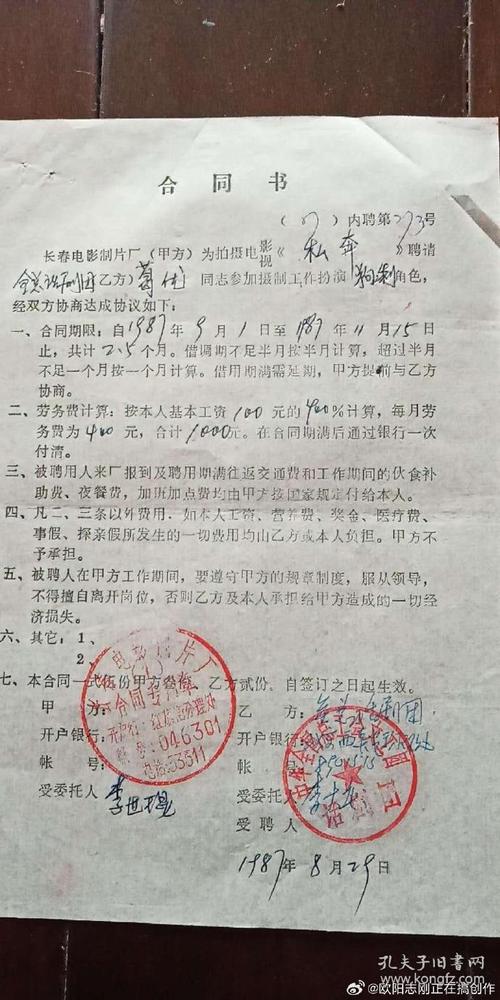 合同书
(87)内聘第273号
长春电影制片厂(甲方)为拍摄电影视《私奔》聘请
全总话剧团(乙方)葛优同志参加摄制工作扮演狗剩角色,
经双方协商达成协议如下:
一、合同期限:自1987年9月1日至1987年11月15日
止,共计2.5个月。借调期不足半月按半月计算,超过半月
不足一个月按一个月计算。借用期满需延期,甲方提前与乙方
协商。
二、劳务费计算:按本人基本工资100元的400%计算,每月劳
务费为400元,合计1000元。在合同期满后通过银行一次
付清。
三、被聘用人来厂报到及聘用期满往返交通费和工作期间的伙食补
助费、夜餐费,加班加点费均由甲方按国家规定付给本人。
四、凡二、三条以外费用.如本人工资、营养费、奖金、医疗费、
事假、探亲假所发生的一切费用均由乙方或本人负担。甲方不
予承担。
五、被聘人在甲方工作期间,要遵守甲方的规章制度,服从领导,
不得擅自离开岗位,否则乙方及本人承担给甲方造成的一切经
济损失。
六、其它:1、
2、
七、本合同一式伍份甲方叁份,乙方贰份,自签订之日起生效。
甲方: 乙方:全总话剧团
开户银行: 开户银行:
帐号: 帐号:
受委托人 李世 受委托人
受聘人
1987年8月29日
电影制片厂
合同专用章
046301
电话:53311
话剧团
孔夫子旧书网
@欧阳志刚正在搞创作